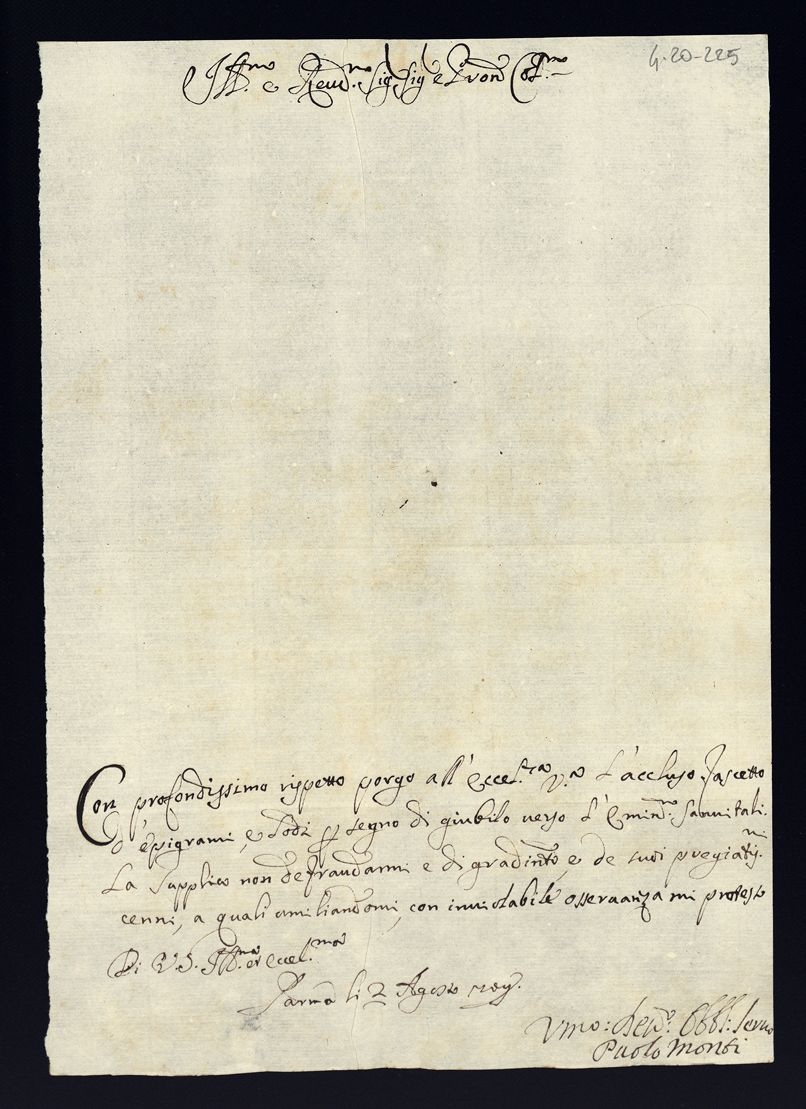 4.20-225
Ill.mo e Reve.mo Sig Sig e P'ron Col.mo
Con profondissimo rispetto porgo all'Eccel.za V.a l'accluso fascetto
d'epigrami, e Lodi per segno di giubilo verso l'Emin.mo Sanvitali.
La supplico non defraudarmi e di gradim.to, e de suoi pregiatis.mi
cenni, a quali umiliandomi, con inviolabile osservanza mi protesto
Di V.S. Ill.ma et Eccel.ma
Parma li 2 Agosto
Vmo: Dev.o Obbl: Servo
Paolo Monti